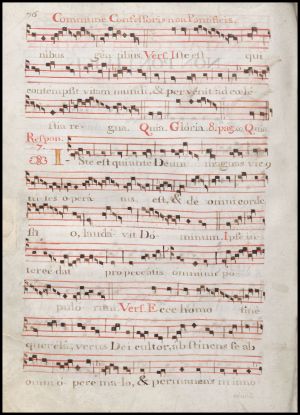 96 Commune Confessoris non Pontificis.
nibus gen tibus. Vers. Iste est qui
contempsit vitam mundi, & per venit ad cœle
stia re gna. Quia. Gloria. 8. pag. Quia
Respon.
7.
Iste est qui ante Deum magnas virtu
tutes opera tus est, & de omni corde
o, lauda vit Do minum. Ipse in
terce dat pro pecca tis omnium po
pulo rum. Vers. E cce homo sine
querela, verus Dei cultor, ab stinens se ab
omni o pere malo, & permanens in inno